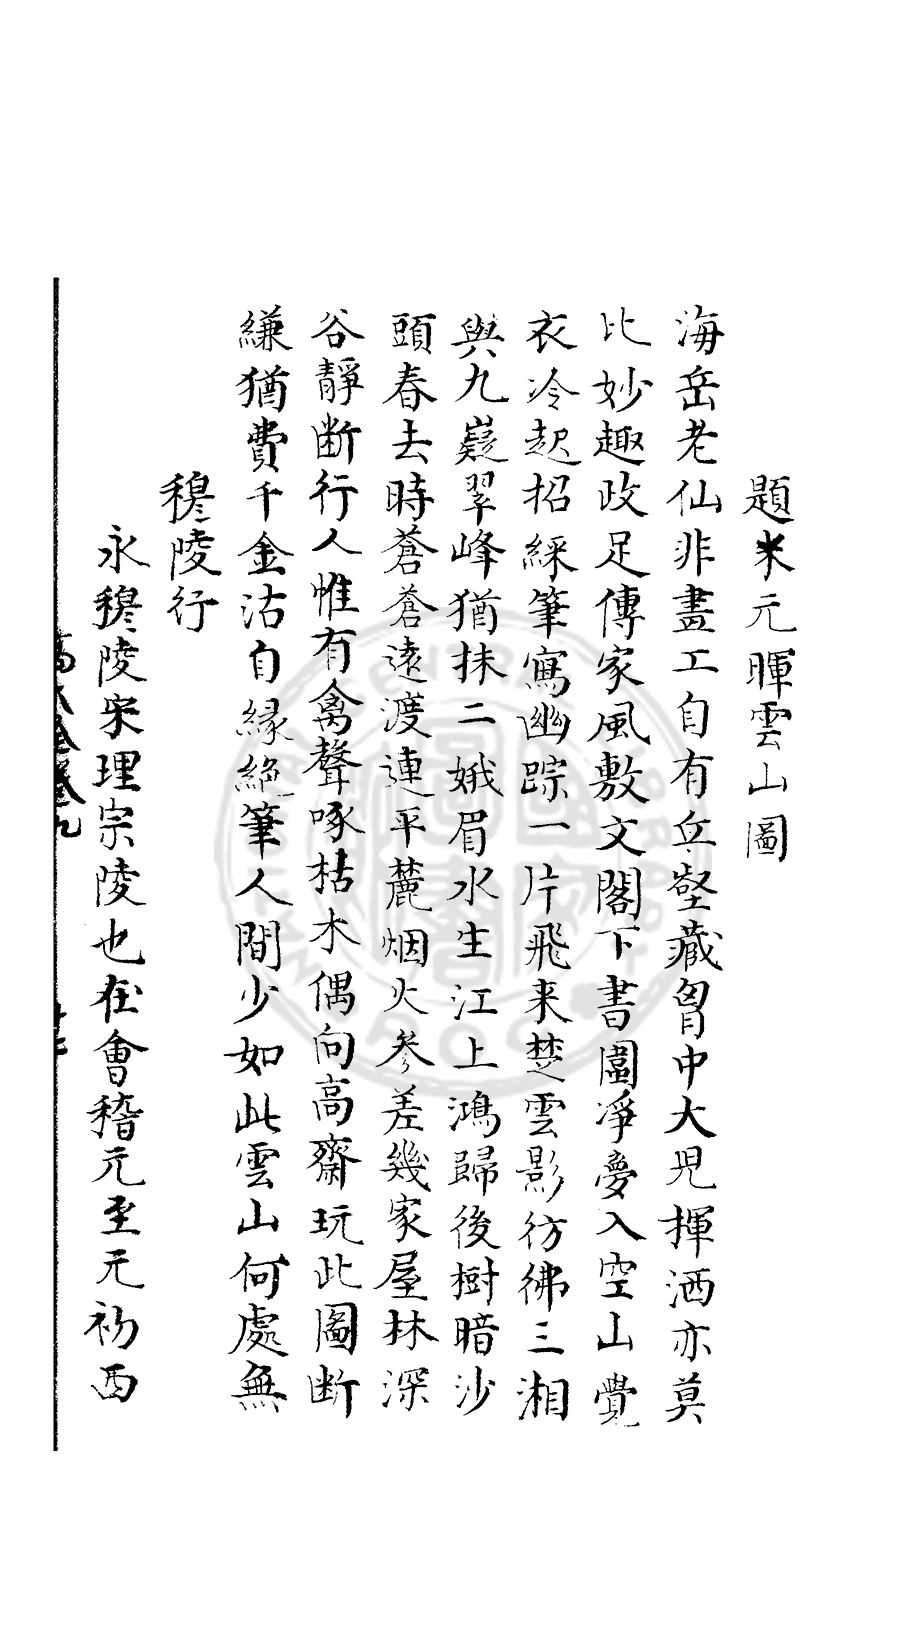 題米元暉雲山圖
海岳老仙非畫工自有丘壑藏胷中大兒揮洒亦莫
比妙趣政足傳家風敷文閣下書圖淨夢入空山覺
衣冷起招綵筆寫幽踪一片飛来楚雲影彷彿三湘
與九嶷翠峰猶抹二娥眉水生江上鴻歸後樹暗沙
頭春去時蒼蒼遠渡連平麓烟火參差幾家屋林深
谷靜斷行人惟有禽聲啄枯木偶向高齋玩此圖断
縑猶費千金沽自緣絕筆人間少如此雲山何處無
穆陵行
永穆陵宋理宗陵也在會稽元至元初西